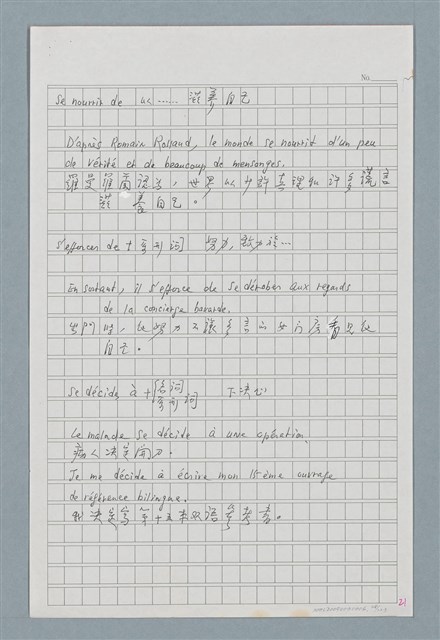 No.
se nourrir de 以…… 滋養自己
D'après Romain Rolland, le monde se nourrit d'un peu
de vérité et de beaucoup de mensonges.
羅曼羅蘭認為，世界以少許真理和許多謊言
滋養自己。
s'efforcer de + 动词 努力，致力於…
En sortant, il s'efforce de se dérober aux regards
de la concierge bavarde.
出門时，他努力不讓多言的女门房看見他
自己。
se décider à + 名词 下决心
动词
Le malade se décide à une opération.
病人决定開刀。
Je me décide à écrire mon 15ème ouvrage
de référence bilingue.
我决定寫第十五本双语参考書。
21